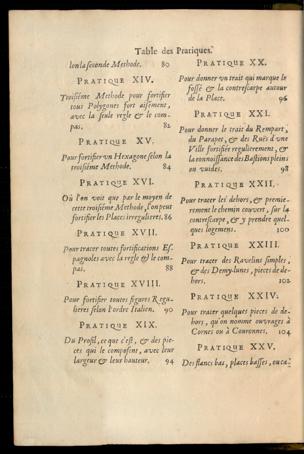 Table des Pratiques.
lon la seconde Methode. 80
PRATIQUE XIV.
Troisiéme Methode pour fortifier
tous Polygones fort aisément,
avec la seule regle & le com-
pas. 82
PRATIQUE XV.
Pour fortifier un Hexagone selon la
troisiéme Methode. 84
PRATIQUE XVI.
Où l'on voit que par le moyen de
cette troisiéme Methode, l'on peut
fortifier les Places irregulieres. 86
PRATIQUE XVII.
Pour tracer toutes fortifications Es-
pagnoles avec la regle & le com-
pas. 88
PRATIQUE XVIII.
Pour fortifier toutes figures Regu-
lieres selon l'ordre Italien. 90
PRATIQUE XIX.
Du Profil, ce que c'est, & des pie-
ces qui le composent, avec leur
largeur & leur hauteur. 94
PRATIQUE XX.
Pour donner un trait qui marque le
fossé & la contrescarpe autour
de la Place. 96
PRATIQUE XXI.
Pour donner le trait du Rempart,
du Parapet, & des Ruës d'une
Ville fortifiée regulierement, &
la connoissance des Bastions pleins
ou vuides. 98
PRATIQUE XXII.
Pour tracer les dehors, & premie-
rement le chemin couvert, sur la
contrescarpe, & y prendre quel-
ques logemens. 100
PRATIQUE XXIII.
Pour tracer des Ravelins simples,
& des Demy-lunes, pieces de de-
hors. 102
PRATIQUE XXIV.
Pour tracer quelques pieces de de-
hors, qu'on nomme ouvrages à
Cornes ou à Couronnes. 104
PRATIQUE XXV.
Des flancs bas, places basses, ou ca-